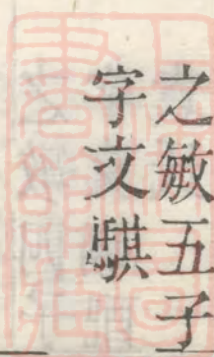 之敏五子
字文騏